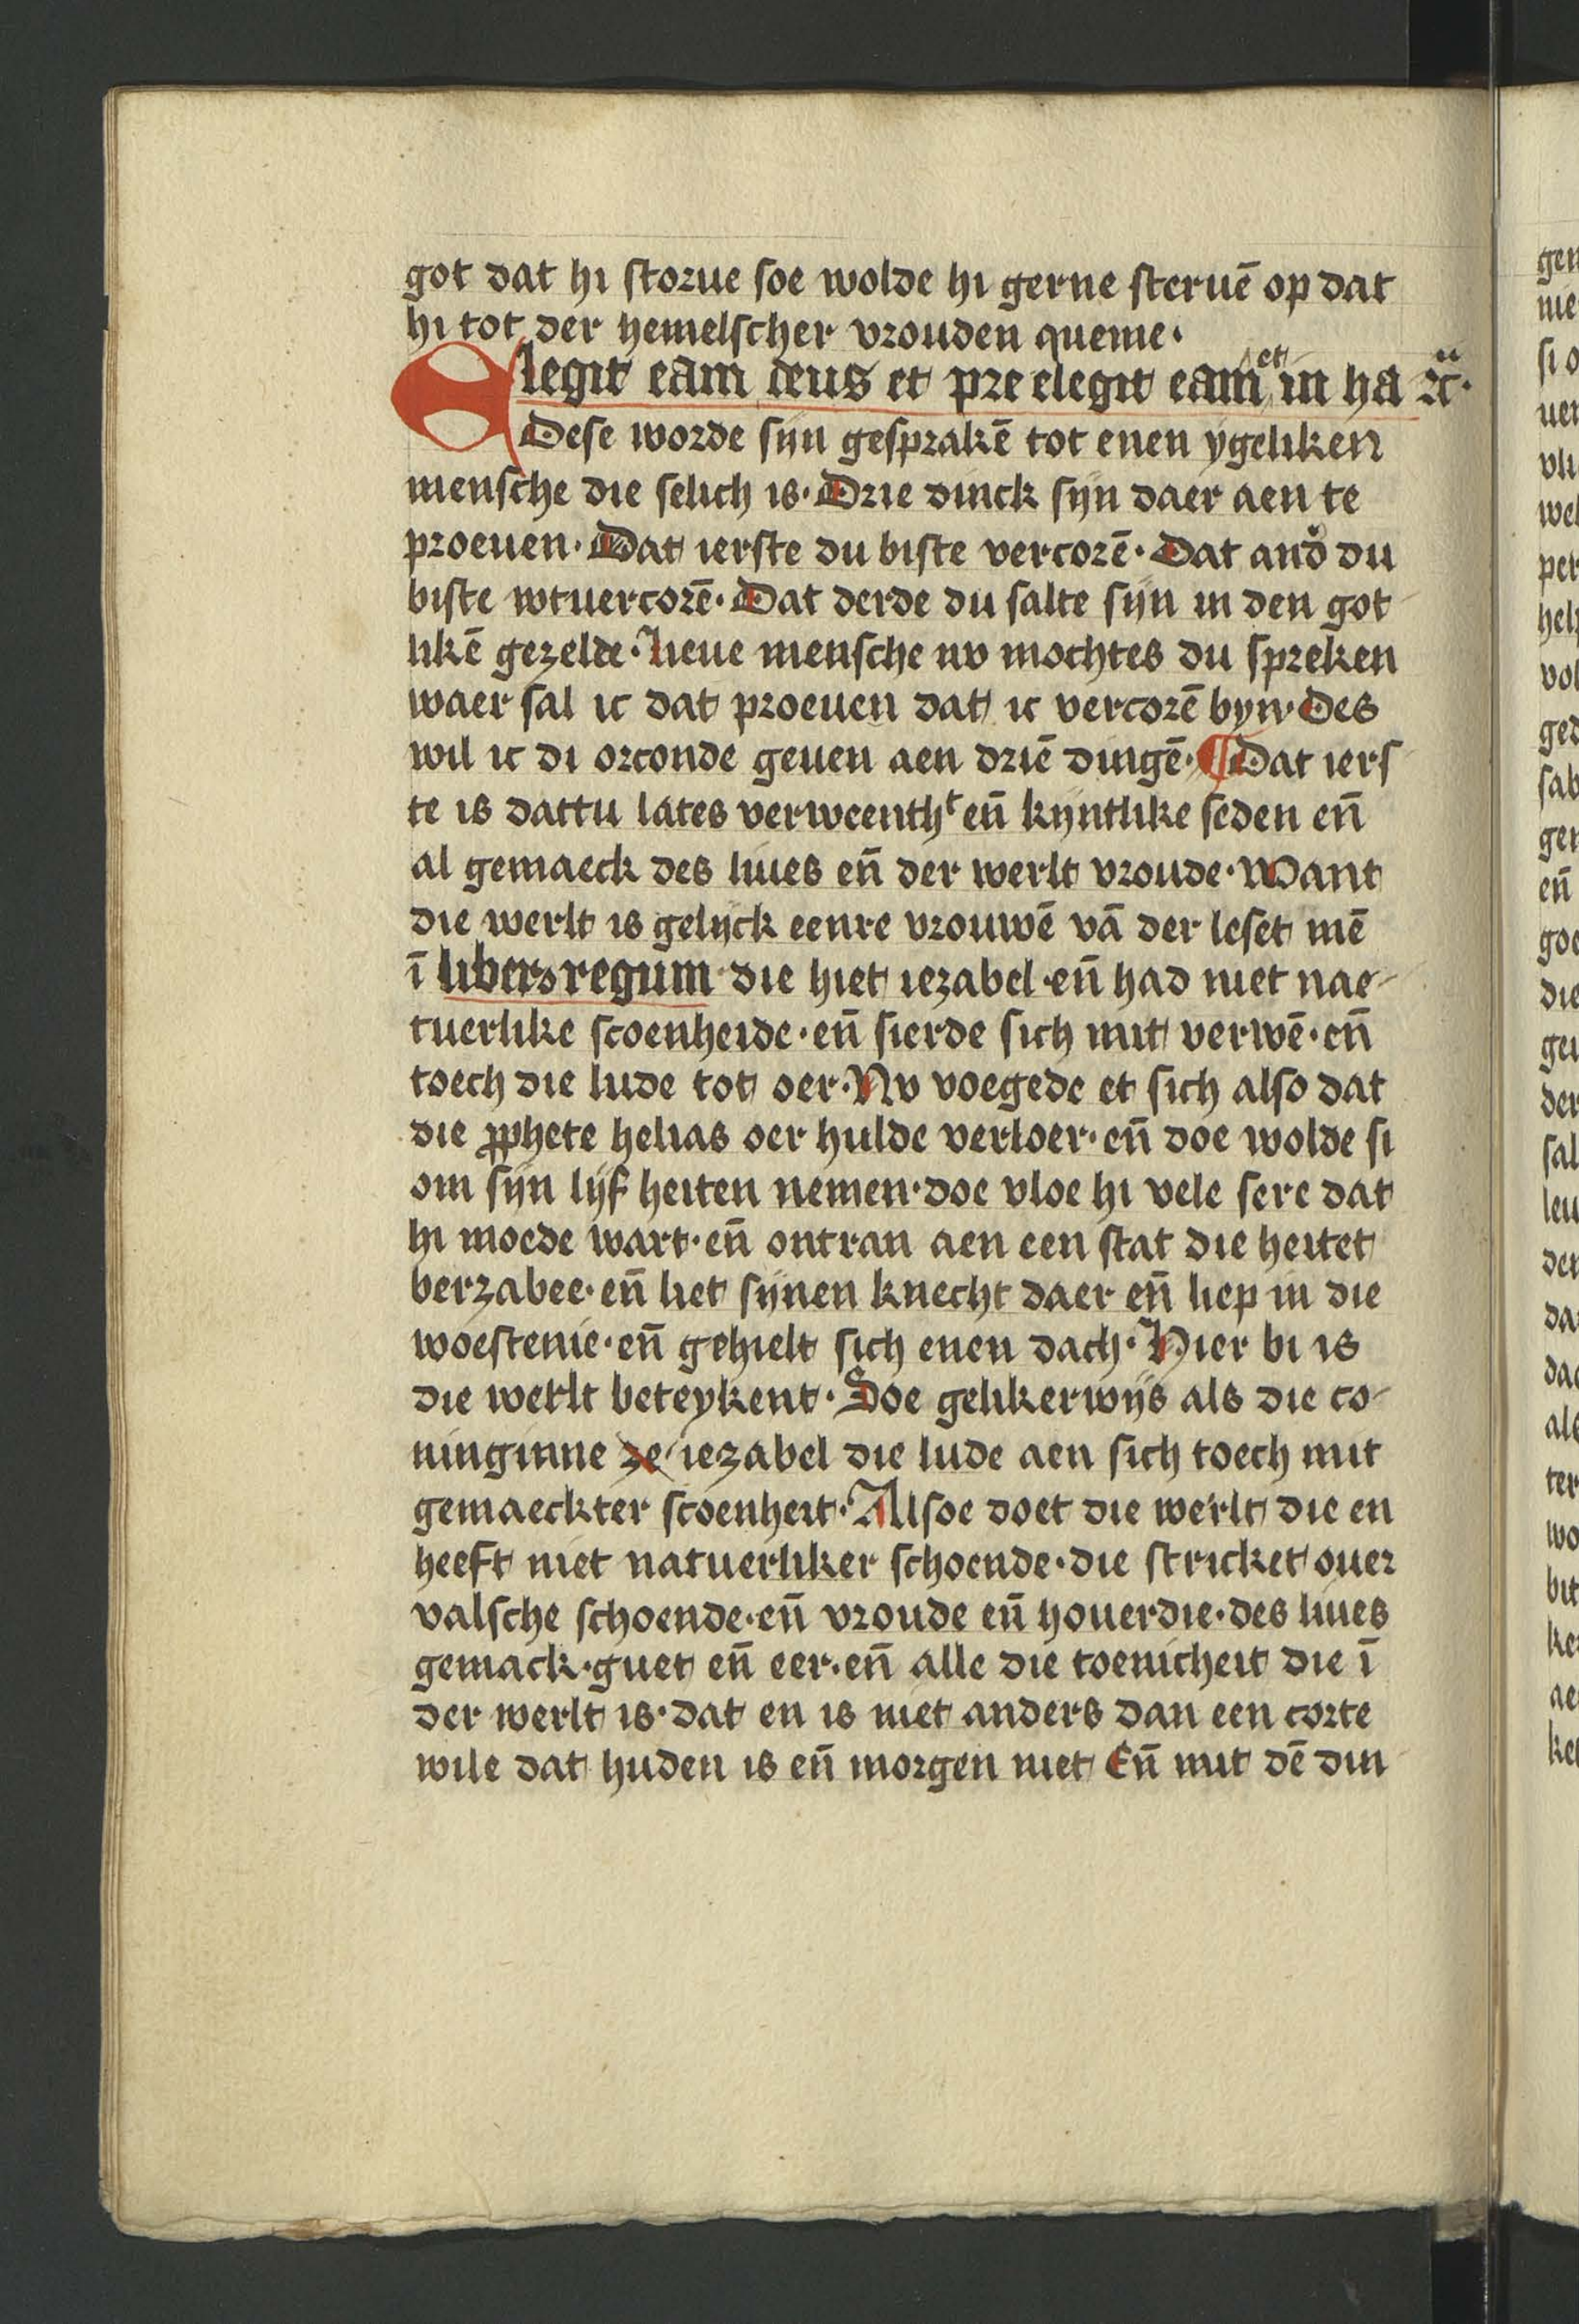 got dat hi storue soe wolde hi gerne steruē op dat
hi tot der hemelscher vrouden queme·
Elegit eam deus et pre elegit eam et in ha
Dese worde sijn gesprakē tot enen ygeliken
mensche die selich is· Drie dinck sijn daer aen te
proeuen· Dat ierste du biste vercorē· Dat and̉ du
biste wtuercorē· Dat derde du salte sijn in den got
likē gezelde· lieue mensche nv mochtes du spreken
waer sal ic dat proeuen dat ic vercorē byn· Des
wil ic di orconde geuen aen driē dingē· ¶ Dat iers
te is dattu lates verweenthᵗ eñ kijntlike seden eñ
al gemaeck des liues eñ der werlt vroude· Want
die werlt is gelijck eenre vrouwē vā der leset mē
ī libers regum die hiet iezabel· eñ had niet nae
tuerlike scoenheide· eñ sierde sich mit verwē· eñ
toech die lude tot oer· Nv voegede et sich also dat
die ꝓphete helias oer hulde verloer· eñ doe wolde si
om sijn lijf heiten nemen· doe vloe hi vele sere dat
hi moede wart· eñ ontran aen een stat die heitet
berzabee· eñ liet sijnen knecht daer eñ liep in die
woestenie· eñ gehielt sich enen dach· Hier bi is
die werlt beteykent· Soe gelikerwijs als die co
ninginne ze iezabel die lude aen sich toech mit
gemaeckter scoenheit· Allsoe doet die werlt die en
heeft niet natuerliker schoende· die stricket ouer
valsche schoende· eñ vroude eñ houerdie· des liues
gemack· guet eñ eer· eñ alle die toenicheit die ī
der werlt is· dat en is niet anders dan een corte
wile dat huden is eñ morgen niet Eñ mit dē din